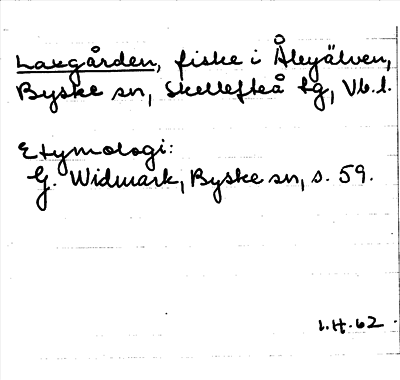 Laxgården, fiske i Åbyälven,
Byske sn, Skellefteå tg, Vb.l.
Etymologi:
G. Widmark, Byske sn, s. 59.
I.H. 62